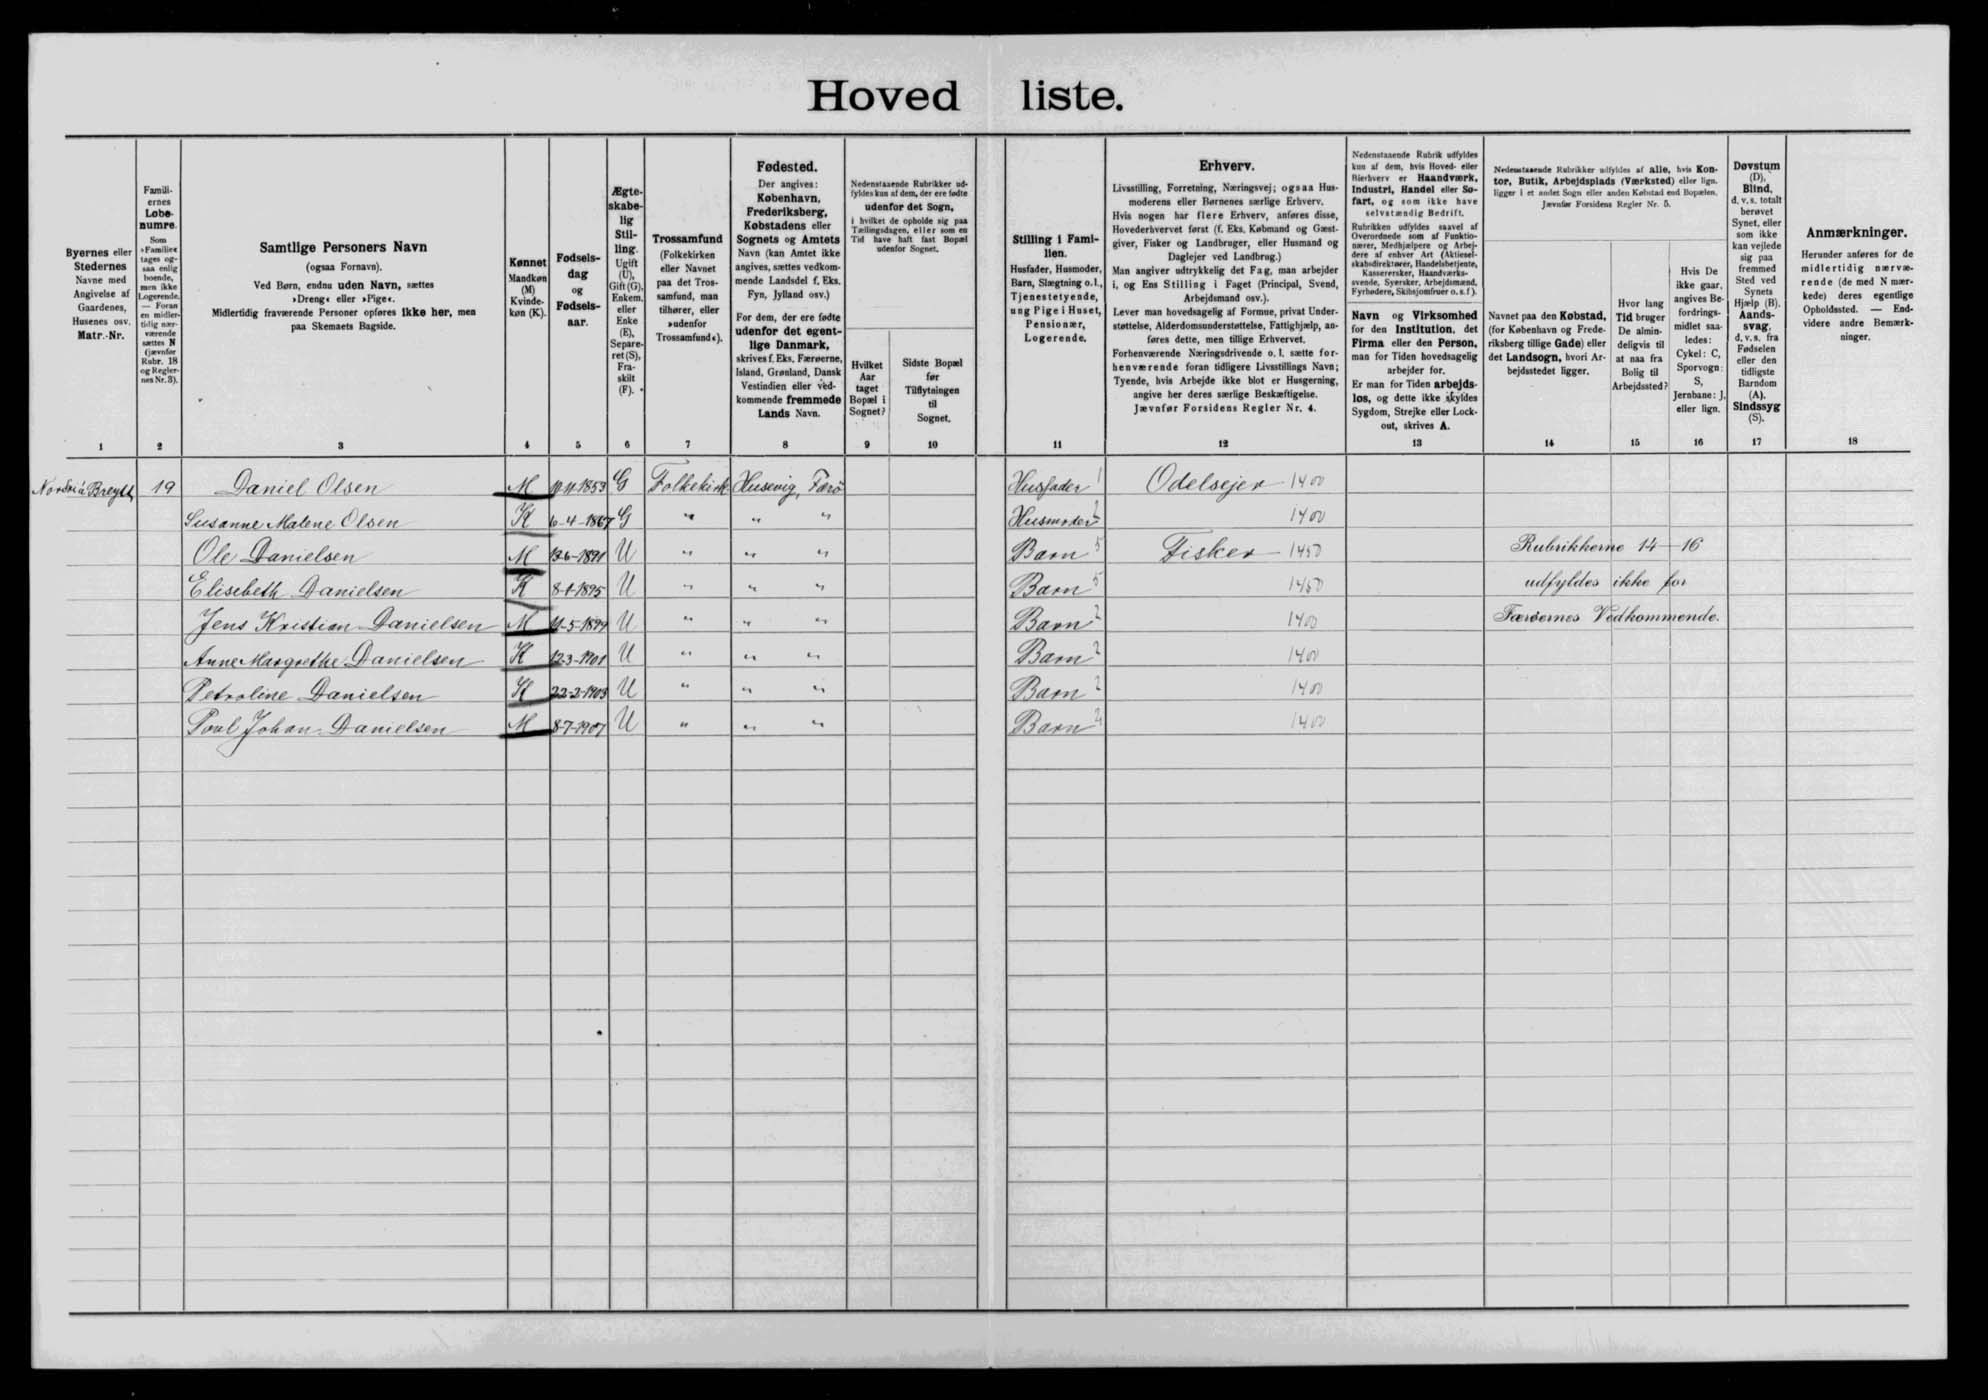 Hovedliste.
Byernes eller Stedernes Navne med Angivelse af Gaardenes, Husenes osv. Matr.-Nr.
Familiernes Løbenumre. Som »Familie« tages ogsaa enlig boende, men ikke Logerende. — Foran en midlertidig nærværende sættes N (jævnfør Rubr. 18 og Regler­nes Nr. 3).
Samtlige Personers Navn
(ogsaa Fornavn).
Ved Børn, endnu uden Navn, sættes
»Dreng« eller »Pige«.
Midlertidig fraværende Personer opføres ikke her, men
paa Skemaets Bagside.
Kønnet Mandkøn (M) Kvindekøn (K).
Fødselsdag og Fødselsaar.
Ægteskabelig Stilling. Ugift (U), Gift (G), Enkem. eller Enke (E), Separeret (S), Fraskilt (F).
Trossamfund (Folkekirken eller Navnet paa det Trossamfund, man tilhører, eller »udenfor Trossamfund«).
Fødested.
Der angives:
København,
Frederiksberg,
Købstadens eller
Sognets og Amtets
Navn (kan Amtet ikke
angives, sættes vedkom-
mende Landsdel f. Eks.
Fyn, Jylland osv.)
For dem, der ere fødte
udenfor det egent-
lige Danmark,
skrives f. Eks. Færøerne,
Island, Grønland, Dansk
Vestindien eller ved-
kommende fremmede
Lands Navn.
Nedenstaaende Rubrikker ud-
fyldes kun af dem, der ere fødte
udenfor det Sogn,
i hvilket de opholde sig paa
Tællingsdagen, eller som en
Tid have haft fast Bopæl
udenfor Sognet.
Hvilket Aar taget Bopæl i Sognet?
Sidste Bopæl før Tilflytningen til Sognet.
Stilling i Fami-
lien.
Husfader, Husmoder,
Barn, Slægtning o.l.,
Tjenestetyende,
ung Pige i Huset,
Pensionær,
Logerende.
Erhverv.
Livsstilling, Forretning, Næringsvej; ogsaa Hus-
moderens eller Børnenes særlige Erhverv.
Hvis nogen har flere Erhverv, anføres disse,
Hovederhvervet først (f. Eks. Købmand og Gæst-
giver, Fisker og Landbruger, eller Husmand og
Daglejer ved Landbrug.)
Man angiver udtrykkelig det Fag, man arbejder
i, og Ens Stilling i Faget (Principal, Svend,
Arbejdsmand osv.).
Lever man hovedsagelig af Formue, privat Under-
støttelse, Alderdomsunderstøttelse, Fattighjælp, an-
føres dette, men tillige Erhvervet.
Forhenværende Næringsdrivende o. l. sætte for-
henværende foran tidligere Livsstillings Navn;
Tyende, hvis Arbejde ikke blot er Husgerning,
angive her deres særlige Beskæftigelse.
Jævnfør Forsidens Regler Nr. 4.
Nedenstaaende Rubrik udfyldes
kun af dem, hvis Hoved- eller
Bierhverv er Haandværk,
Industri, Handel eller Sø-
fart, og som ikke have
selvstændig Bedrift.
Rubrikken udfyldes saavel af
Overordnede som af Funktio-
nærer, Medhjælpere og Arbej-
dere af enhver Art (Aktiesel-
skabsdirektører, Handelsbetjente,
Kasserersker, Haandværks-
svende, Syersker, Arbejdsmænd,
Fyrbødere, Skibsjomfruer o. s. f).
Navn og Virksomhed
for den Institution, det
Firma eller den Person,
man for Tiden hovedsagelig
arbejder for.
Er man for Tiden arbejds-
løs, og dette ikke skyldes
Sygdom, Strejke eller Lock-
out, skrives A.
Nedenstaaende Rubrikker udfyldes af alle, hvis Kon-
tor, Butik, Arbejdsplads (Værksted) eller lign.
ligger i et andet Sogn eller anden Købstad end Bopælen.
Jævnfør Forsidens Regler Nr. 5.
Navnet paa den Købstad,
(for København og Frede-
riksberg tillige Gade) eller
det Landsogn, hvori Ar-
bejdsstedet ligger.
Hvor lang Tid bruger De almindeligvis til at naa fra Bolig til Arbejdssted?
Hvis De ikke gaar, angives Befordringsmidlet saaledes: Cykel: C, Sporvogn: S, Jernbane: J, eller lign.
Døvstum (D), Blind, d. v. s. totalt berøvet Synet, eller som ikke kan vejlede sig paa fremmed Sted ved Synets Hjælp (B). Aandssvag, d. v. s. fra Fødselen eller den tidligste Barndom (A). Sindssyg (S).
Anmærkninger.
Herunder anføres for de
midlertidig nærvæ-
rende (de med N mær-
kede) deres egentlige
Opholdssted. — End-
videre andre Bemærk-
ninger.
1 2 3 4 5 6 7 8 9 10 11 12 13 14 15 16 17 18
19 Daniel Olsen M 11-11-1853 G Folkekirk Husevig, Færø Husfader 1 Odelsejer 1400
Susanne Malene Olsen K 6-4-1867 G " " " Husmoder 2 1400
Ole Danielsen M 13-6-1891 U " " " Barn 5 Fisker 1450 Rubrikkerne 14-16
Elisebeth Danielsen K 8-1-1895 U " " " Barn 5 1450 udfyldes ikke for
Jens Kristian Danielsen M 11-5-1899 U " " " Barn 2 1400 Færøernes Vedkommende.
Anne Margrethe Danielsen K 12-3-1901 U " " " Barn 2 1400
Petroline Danielsen K 22-2-1903 U " " " Barn 2 1400
Poul Johan Danielsen M 8-7-1907 U " " " Barn 2 1400